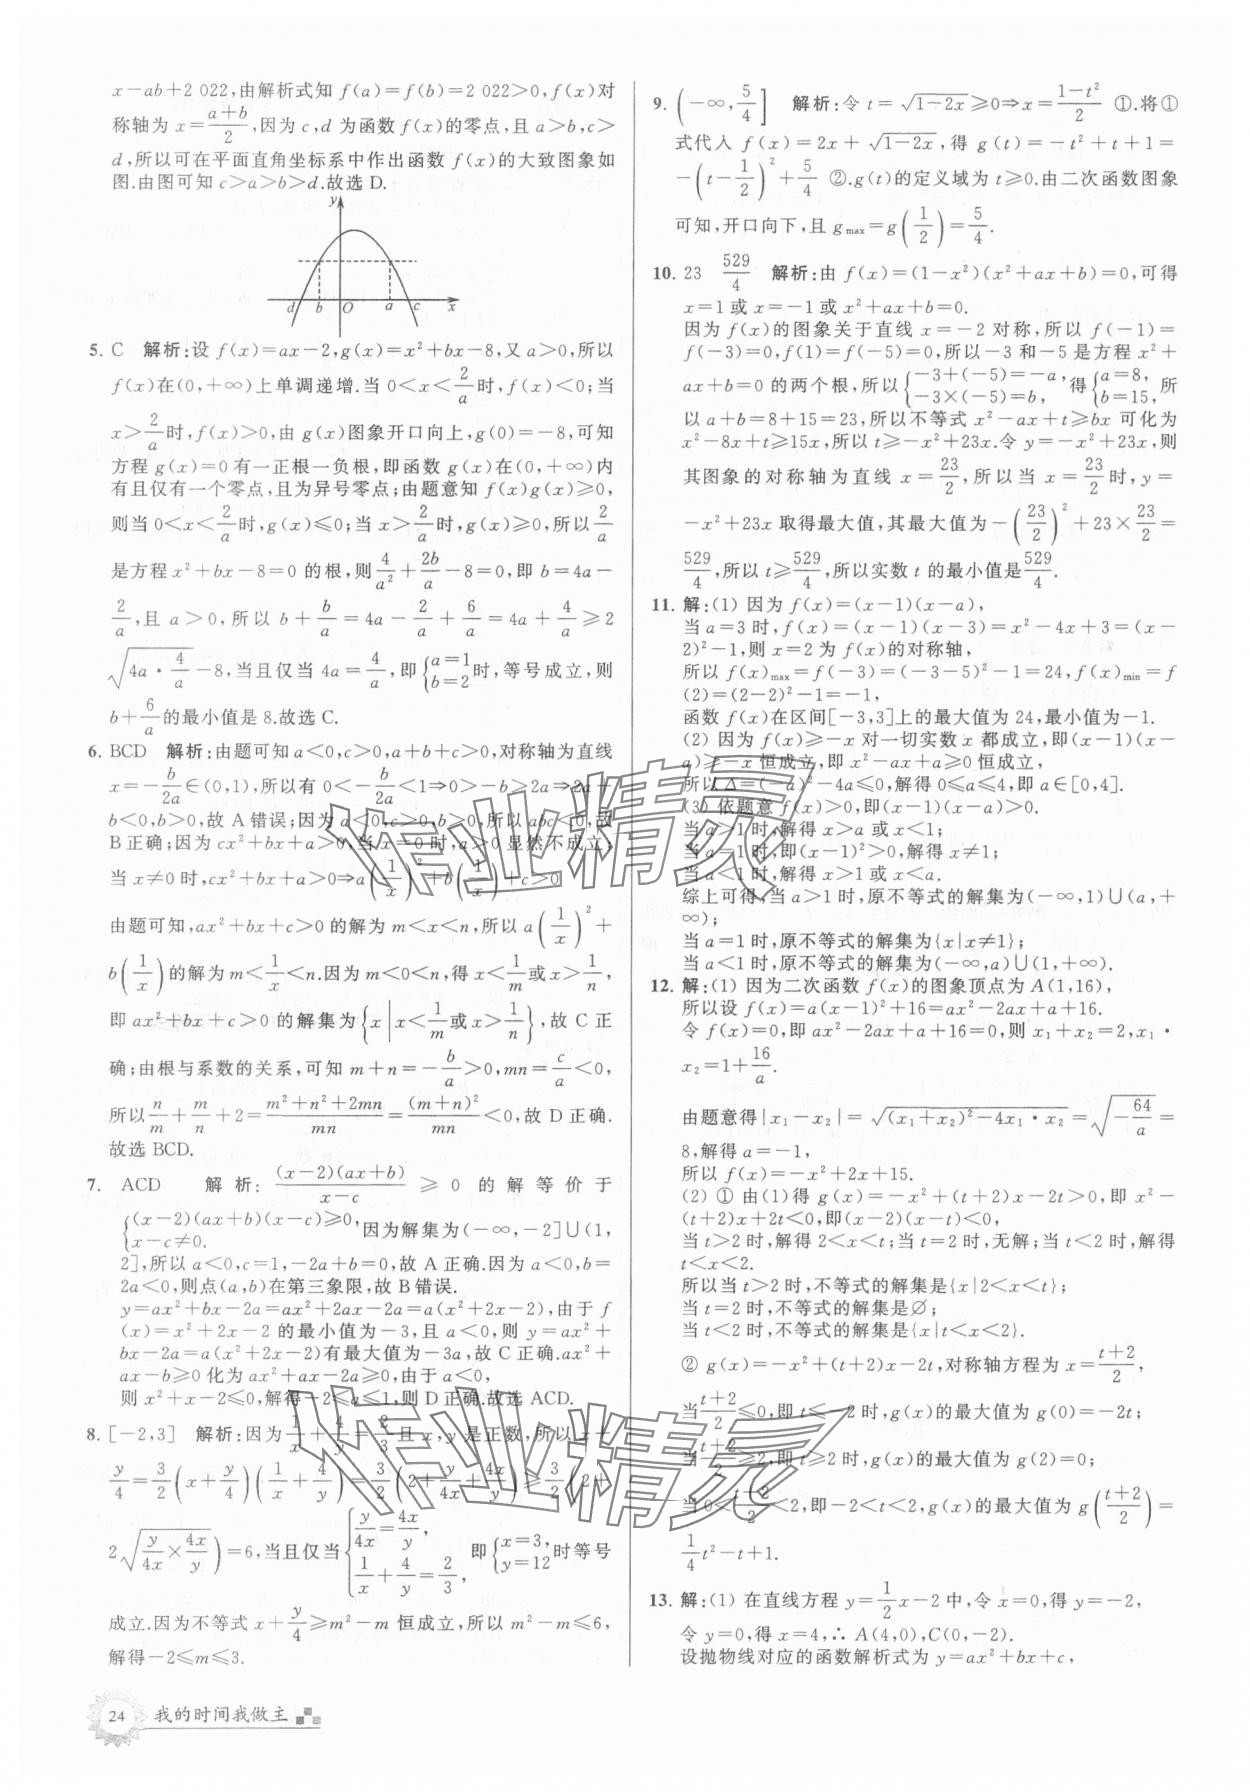 x-ab+2 022,由解析式知 f(a)=f(b)=2 022>0,f(x)对
称轴为 x=\frac{a+b}{2},因为 c,d 为函数 f(x)的零点,且 a>b,c>
d,所以可在平面直角坐标系中作出函数 f(x)的大致图象如
图.由图可知 c>a>b>d.故选 D.
y
d b O a c x
5. C 解析:设 f(x)=ax-2,g(x)=x²+bx-8,又 a>0,所以
f(x)在(0,+∞)上单调递增.当 0<x<\frac{2}{a}时,f(x)<0;当
x>\frac{2}{a}时,f(x)>0,由 g(x)图象开口向上,g(0)=-8,可知
方程 g(x)=0 有一正根一负根,即函数 g(x)在(0,+∞)内
有且仅有一个零点,且为异号零点;由题意知 f(x)g(x)≥0,
则当 0<x<\frac{2}{a}时,g(x)≤0;当 x>\frac{2}{a}时,g(x)≥0,所以\frac{2}{a}
是方程 x²+bx-8=0 的根,则\frac{4}{a²}+\frac{2b}{a}-8=0,即 b=4a-
\frac{2}{a},且 a>0,所以 b+\frac{b}{a}=4a-\frac{2}{a}+\frac{6}{a}=4a+\frac{4}{a}≥2
\sqrt{4a·\frac{4}{a}}-8,当且仅当 4a=\frac{4}{a},即{a=1 b=2时,等号成立,则
b+\frac{6}{a}的最小值是 8.故选 C.
6. BCD 解析:由题可知 a<0,c>0,a+b+c>0,对称轴为直线
x=-\frac{b}{2a}∈(0,1),所以有 0<-\frac{b}{2a}<1⇒0>-b>2a⇒2a+
b<0,b>0,故 A 错误;因为 a<0,c>0,b>0,所以 abc<0,故
B 正确;因为 cx²+bx+a>0,当 x=0 时,a>0 显然不成立;
当 x≠0 时,cx²+bx+a>0⇒a(\frac{1}{x})²+b(\frac{1}{x})+c>0
由题可知,ax²+bx+c>0 的解为 m<x<n,所以 a(\frac{1}{x})²+
b(\frac{1}{x})的解为 m<\frac{1}{x}<n.因为 m<0<n,得 x<\frac{1}{m}或 x>\frac{1}{n},
即 ax²+bx+c>0 的解集为{x|x<\frac{1}{m}或 x>\frac{1}{n}},故 C 正
确;由根与系数的关系,可知 m+n=-\frac{b}{a}>0,mn=\frac{c}{a}<0,
所以\frac{n}{m}+\frac{m}{n}+2=\frac{m²+n²+2mn}{mn}=\frac{(m+n)²}{mn}<0,故 D 正确.
故选 BCD.
7. ACD 解析:\frac{(x-2)(ax+b)}{x-c}≥0 的解等价于
{(x-2)(ax+b)(x-c)≥0, x-c≠0. 因为解集为(-∞,-2]∪(1,
2],所以 a<0,c=1,-2a+b=0,故 A 正确.因为 a<0,b=
2a<0,则点(a,b)在第三象限,故 B 错误.
y=ax²+bx-2a=ax²+2ax-2a=a(x²+2x-2),由于 f
(x)=x²+2x-2 的最小值为-3,且 a<0,则 y=ax²+
bx-2a=a(x²+2x-2)有最大值为-3a,故 C 正确.ax²+
ax-b≥0 化为 ax²+ax-2a≥0,由于 a<0,
则 x²+x-2≤0,解得-2≤a≤1,则 D 正确.故选 ACD.
8. [-2,3] 解析:因为\frac{1}{x}+\frac{4}{y}=\frac{2}{3},且 x,y 是正数,所以 x+
\frac{y}{4}=\frac{3}{2}(x+\frac{y}{4})(\frac{1}{x}+\frac{4}{y})=\frac{3}{2}(2+\frac{y}{4x}+\frac{4x}{y})≥\frac{3}{2}(2+
2\sqrt{\frac{y}{4x}×\frac{4x}{y}})=6,当且仅当{\frac{y}{4x}=\frac{4x}{y}, \frac{1}{x}+\frac{4}{y}=\frac{2}{3}, 即{x=3, y=12时等号
成立.因为不等式 x+\frac{y}{4}≥m²-m 恒成立,所以 m²-m≤6,
解得-2≤m≤3.
9. (-∞,\frac{5}{4}] 解析:令 t=\sqrt{1-2x}≥0⇒x=\frac{1-t²}{2} ①.将①
式代入 f(x)=2x+\sqrt{1-2x},得 g(t)=-t²+t+1=
-(t-\frac{1}{2})²+\frac{5}{4} ②.g(t)的定义域为 t≥0.由二次函数图象
可知,开口向下,且 g_{max}=g(\frac{1}{2})=\frac{5}{4}.
10. 23 \frac{529}{4} 解析:由 f(x)=(1-x²)(x²+ax+b)=0,可得
x=1 或 x=-1 或 x²+ax+b=0.
因为 f(x)的图象关于直线 x=-2 对称,所以 f(-1)=
f(-3)=0,f(1)=f(-5)=0,所以-3 和-5 是方程 x²+
ax+b=0 的两个根,所以{-3+(-5)=-a, -3×(-5)=b, 得{a=8, b=15, 所
以 a+b=8+15=23,所以不等式 x²-ax+t≥bx 可化为
x²-8x+t≥15x,所以 t≥-x²+23x.令 y=-x²+23x,则
其图象的对称轴为直线 x=\frac{23}{2},所以当 x=\frac{23}{2}时,y=
-x²+23x 取得最大值,其最大值为-(\frac{23}{2})²+23×\frac{23}{2}=
\frac{529}{4},所以 t≥\frac{529}{4},所以实数 t 的最小值是\frac{529}{4}.
11. 解:(1) 因为 f(x)=(x-1)(x-a),
当 a=3 时,f(x)=(x-1)(x-3)=x²-4x+3=(x-
2)²-1,则 x=2 为 f(x)的对称轴,
所以 f(x)_{max}=f(-3)=(-3-5)²-1=24,f(x)_{min}=f
(2)=(2-2)²-1=-1,
函数 f(x)在区间[-3,3]上的最大值为 24,最小值为-1.
(2) 因为 f(x)≥-x 对一切实数 x 都成立,即(x-1)(x-
a)≥-x 恒成立,所以 x²-ax+a≥0 恒成立,
所以 Δ=(-a)²-4a≤0,解得 0≤a≤4,即 a∈[0,4].
(3) 依题意 f(x)>0,即(x-1)(x-a)>0.
当 a>1 时,解得 x>a 或 x<1;
当 a=1 时,即(x-1)²>0,解得 x≠1;
当 a<1 时,解得 x>1 或 x<a.
综上可得,当 a>1 时,原不等式的解集为(-∞,1)∪(a,+
∞);
当 a=1 时,原不等式的解集为{x|x≠1};
当 a<1 时,原不等式的解集为(-∞,a)∪(1,+∞).
12. 解:(1) 因为二次函数 f(x)的图象顶点为 A(1,16),
所以设 f(x)=a(x-1)²+16=ax²-2ax+a+16.
令 f(x)=0,即 ax²-2ax+a+16=0,则 x₁+x₂=2,x₁·
x₂=1+\frac{16}{a}.
由题意得|x₁-x₂|=\sqrt{(x₁+x₂)²-4x₁·x₂}=\sqrt{-\frac{64}{a}}=
8,解得 a=-1,
所以 f(x)=-x²+2x+15.
(2) ① 由(1)得 g(x)=-x²+(t+2)x-2t>0,即 x²-
(t+2)x+2t<0,即(x-2)(x-t)<0,
当 t>2 时,解得 2<x<t;当 t=2 时,无解;当 t<2 时,解得
t<x<2.
所以当 t>2 时,不等式的解集是{x|2<x<t};
当 t=2 时,不等式的解集是∅;
当 t<2 时,不等式的解集是{x|t<x<2}.
② g(x)=-x²+(t+2)x-2t,对称轴方程为 x=\frac{t+2}{2},
当\frac{t+2}{2}≤0,即 t≤-2 时,g(x)的最大值为 g(0)=-2t;
当\frac{t+2}{2}≥2,即 t≥2 时,g(x)的最大值为 g(2)=0;
当 0<\frac{t+2}{2}<2,即-2<t<2,g(x)的最大值为 g(\frac{t+2}{2})=
\frac{1}{4}t²-t+1.
13. 解:(1) 在直线方程 y=\frac{1}{2}x-2 中,令 x=0,得 y=-2,
令 y=0,得 x=4,∴A(4,0),C(0,-2).
设抛物线对应的函数解析式为 y=ax²+bx+c,
24 我的时间我做主
作业精灵
作业精灵